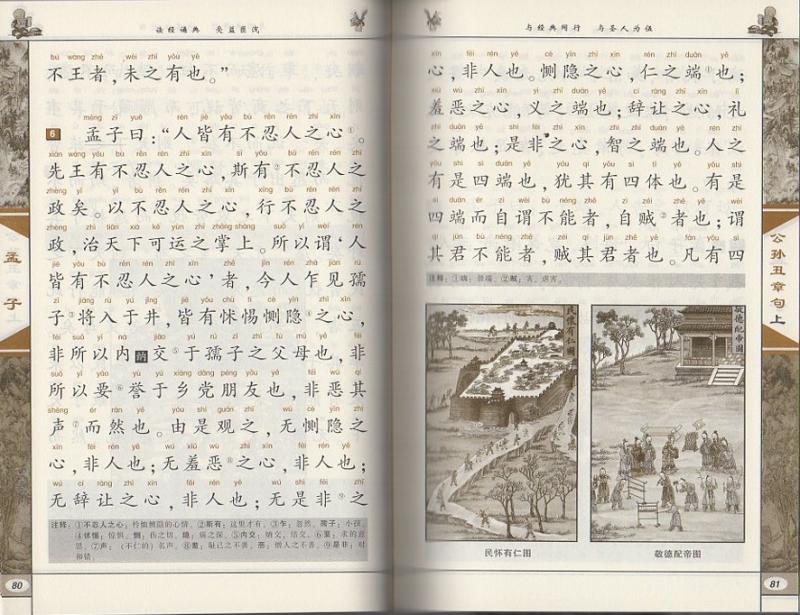 读经诵典 受益匪浅
bù wàng zhě, wèi zhī yǒu yě
不王者，未之有也。”
mèng zǐ yuē rén jiē yǒu bù rěn rén zhī xīn
6 孟子曰：“人皆有不忍人之心①。
xiān wáng yǒu bù rěn rén zhī xīn sī yǒu bù rěn rén zhī
先王有不忍人之心，斯有②不忍人之
zhèng yǐ yǐ bù rěn rén zhī xīn xíng bù rěn rén zhī
政矣。以不忍人之心，行不忍人之
zhèng zhì tiān xià kě yùn zhī zhǎng shàng suǒ yǐ wèi rén
政，治天下可运之掌上。所以谓‘人
jiē yǒu bù rěn rén zhī xīn zhě jīn rén zhà jiàn rú
皆有不忍人之心’者，今人乍见孺
zǐ jiāng rù yú jǐng jiē yǒu chù tì cè yǐn zhī xīn
子③将入于井，皆有怵惕恻隐④之心，
fēi suǒ yǐ nà jiāo yú rú zǐ zhī fù mǔ yě fēi
非所以内纳交⑤于孺子之父母也，非
suǒ yǐ yāo yù yú xiāng dǎng péng yǒu yě fēi wù qí
所以要⑥誉于乡党朋友也，非恶其
shēng ér rán yě yóu shì guān zhī wú cè yǐn zhī
声⑦而然也。由是观之，无恻隐之
xīn fēi rén yě wú xiū wù zhī xīn fēi rén yě
心，非人也；无羞恶⑧之心，非人也；
wú cí ràng zhī xīn fēi rén yě wú shì fēi zhī
无辞让之心，非人也；无是非⑨之
注释：①不忍人之心：怜恤恻隐的心情。②斯有：这里才有。③乍：忽然。孺子：小孩。
④怵惕：惊惧。恻：伤之切。隐：痛之深。⑤内交：纳交、结交。⑥要：求的意
思。⑦声：（不仁的）名声。⑧羞：耻己之不善。恶：憎人之不善。⑨是非：对
和错。
80
孟子
与经典同行 与圣人为伍
xīn fēi rén yě cè yǐn zhī xīn rén zhī duān yě
心，非人也。恻隐之心，仁之端①也；
xiū wù zhī xīn yì zhī duān yě cí ràng zhī xīn lǐ
羞恶之心，义之端也；辞让之心，礼
zhī duān yě shì fēi zhī xīn zhì zhī duān yě rén zhī
之端也；是非之心，智之端也。人之
yǒu shì sì duān yě yóu qí yǒu sì tǐ yě yǒu shì
有是四端也，犹其有四体也。有是
sì duān ér zì wèi bù néng zhě zì zéi zhě yě wèi
四端而自谓不能者，自贼②者也；谓
qí jūn bù néng zhě zéi qí jūn zhě yě fán yǒu sì
其君不能者，贼其君者也。凡有四
注释：①端：发端。②贼：害，戕害。
民怀有仁图
敬德配帝图
民怀有仁图
敬德配帝图
公孙丑章句上
81